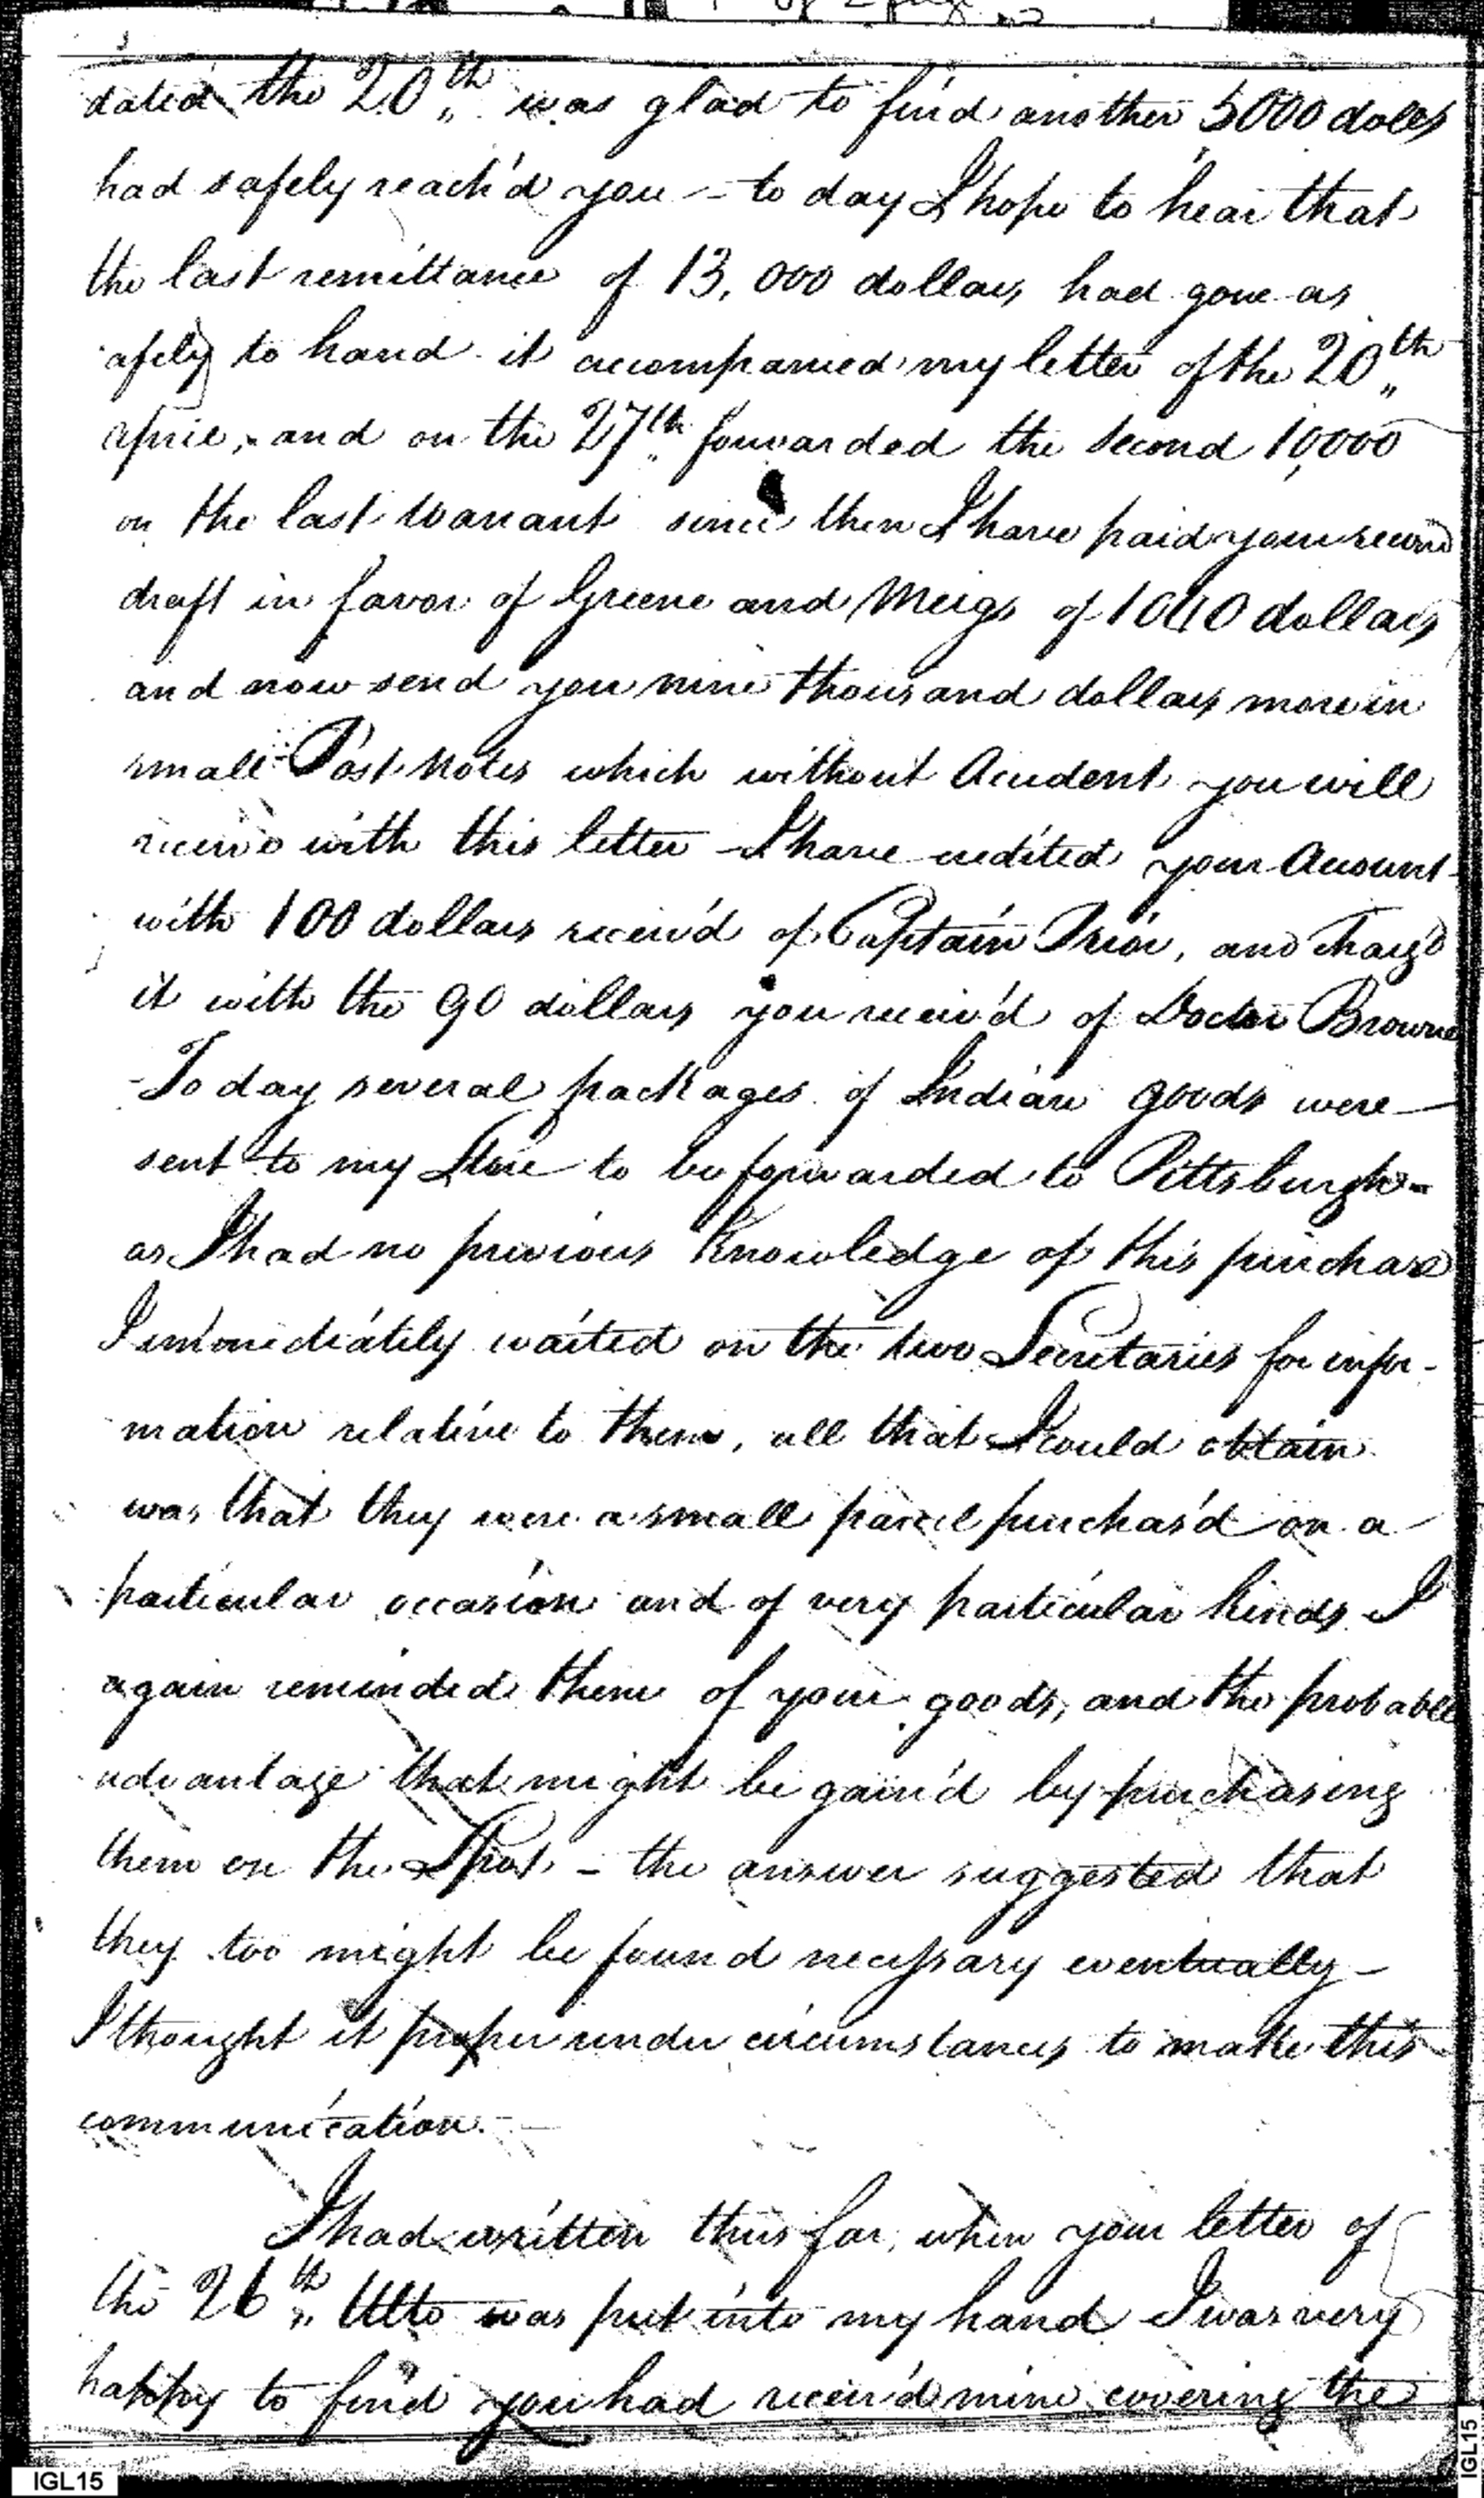 dated the 20th was glad to find another 5000 dolls
had safely reach'd you – to day I hope to hear that
the last remittance of 13,000 dollars had gone as
afely to hand it accompanied my letter of the 20th
april, and on the 27th forwarded the second 10,000
on the last Warrant since then I have paid your second
draft in favor of Greene and Meigs of 1040 dollars
and now send you nine thousand dollars more in
small Post Notes which without Accident you will
receive with this letter – I have credited your Account
with 100 dollars receiv'd of Captain Prior, and charg'd
it with the 90 dollars you receiv'd of Doctor Browne
– To day several packages of Indian goods were –
sent to my Store to be forwarded to Pittsburgh –
as I had no previous Knowledge of this purchase
I immediately waited on the two Secretaries for infor-
mation relative to them, all that I could obtain
was that they were a small parcel purchas'd on a
particular occasion and of very particular kinds I
again reminded them of your goods, and the probable
advantage that might be gain'd by purchasing
them on the Spot – the answer suggested that
they too might be found necessary eventually –
I thought it proper under circumstances to make this
communication. –
I had written thus far, when your letter of
the 26th Ulto was put into my hand I was very
happy to find you had receiv'd mine covering the
IGL15
IGL15